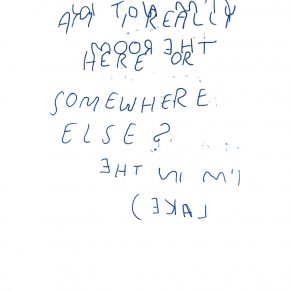 YOU REALLY
THE ROOM
HERE OR
SOMEWHERE
ELSE?
I'M IN THE
LAKE)